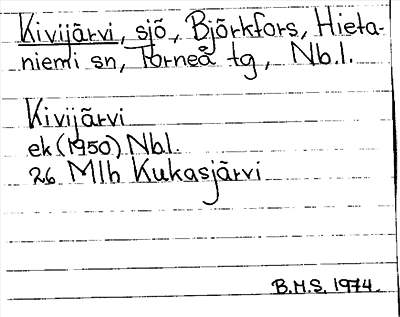 Kivijärvi, sjö, Björkfors, Hieta-
niemi sn, Torneå tg, Nb.l.
Kivijärvi
ek (1950) Nb.l.
26 Mlb Kukasjärvi
B.M.S. 1974.